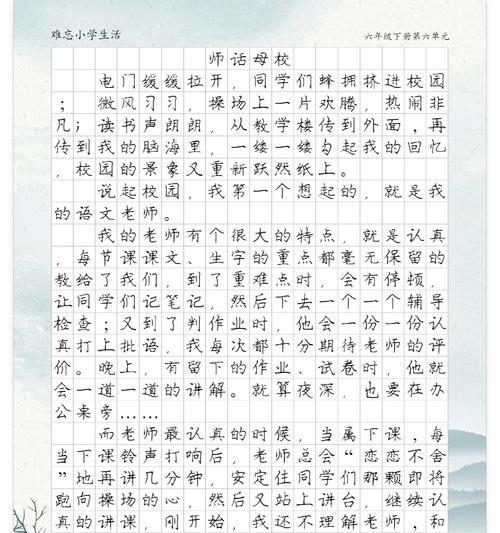 难忘小学生活
六年级下册第六单元
师话母校
电门缓缓拉开，同学们蜂拥挤进校园
；微风习习，操场上一片欢腾，热闹非
凡；读书声朗朗，从教学楼传到外面，再
传到我的脑海里，一缕一缕勾起我的回忆
，校园的景象又重新跃然纸上。
说起校园，我第一个想起的，就是我
的语文老师。
我的老师有个很大的特点，就是认真
，每节课课文、生字的重点都毫无保留的
教给了我们，到了重难点时，会有停顿，
让同学们记笔记，然后下去一个一个辅导
检查；又到了判作业时，他会一份一份认
真打上批语，我每次都十分期待老师的评
价。晚上，有留下的作业、试卷时，他就
会一道一道的讲解。就算夜深，也要在办
公桌旁……
而老师最认真的时候，当属下课，每
当下课铃声打响后，老师总会“恋恋不舍
”地再讲几分钟，安定住同学们那颗即将
跑向操场的心，然后又站上讲台，继续认
真的讲课，刚开始，我还不理解老师，和